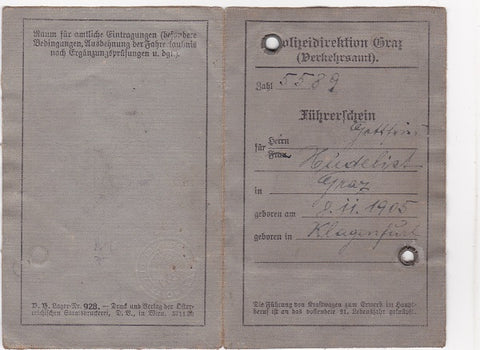 Raum für amtliche Eintragungen (besondere
Bedingungen, Ausdehnung der Fahrerlaubnis
nach Ergänzungsprüfungen u. dgl.).
D. V. Lager-Nr. 928. — Druck und Verlag der Öster-
reichischen Staatsdruckerei, D. V., in Wien.
Polizeidirektion Graz
(Verkehrsamt).
Zahl 5589
Führerschein
Gottfried
für Herrn
Frau
Hudelist
in Graz
geboren am 9. 11. 1905
geboren in Klagenfurt
Die Führung von Kraftwagen zum Erwerb im Haupt-
beruf ist an das vollendete 21. Lebensjahr geknüpft.